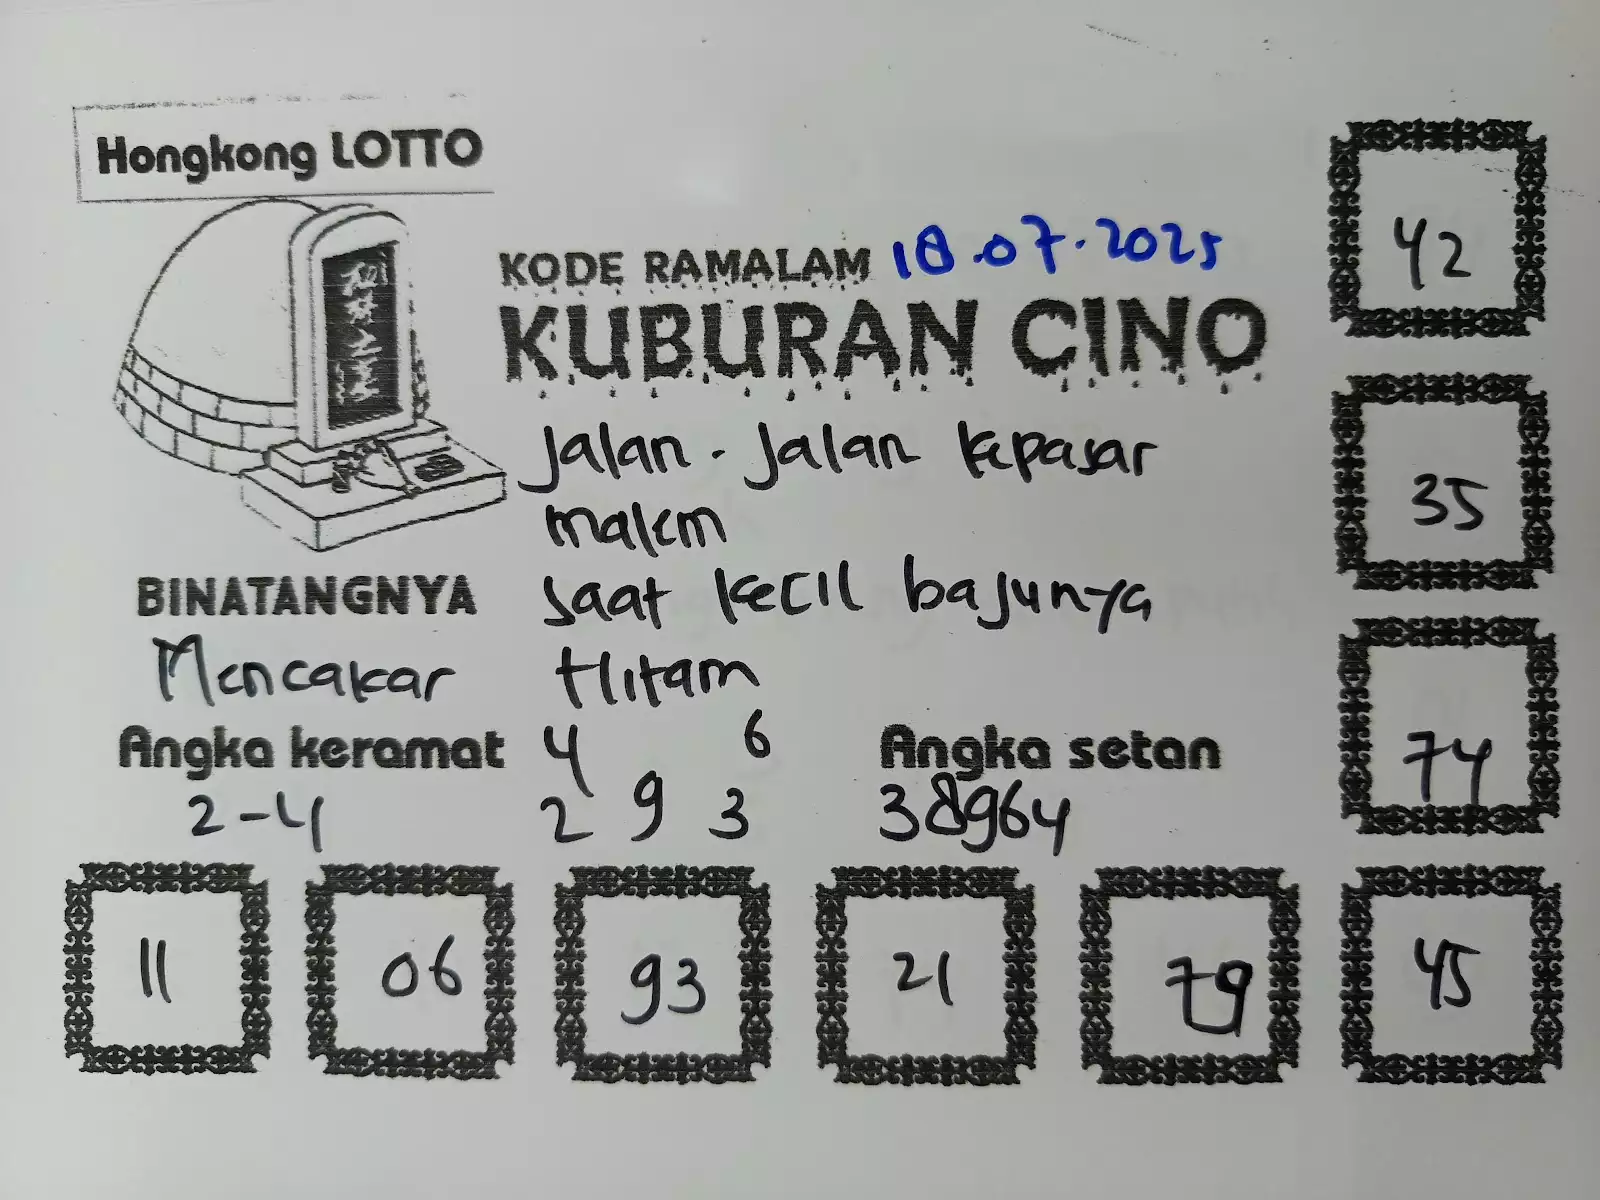 Hongkong LOTTO
KODE RAMALAM 18.07.2025
KUBURAN CINO
Jalan-Jalan kepasar
malem
saat kecil bajunya
Hitam
BINATANGNYA
Mencakar
Angka keramat
2-4
4 6
2 9 3
Angka setan
38964
42
35
74
11
06
93
21
79
45